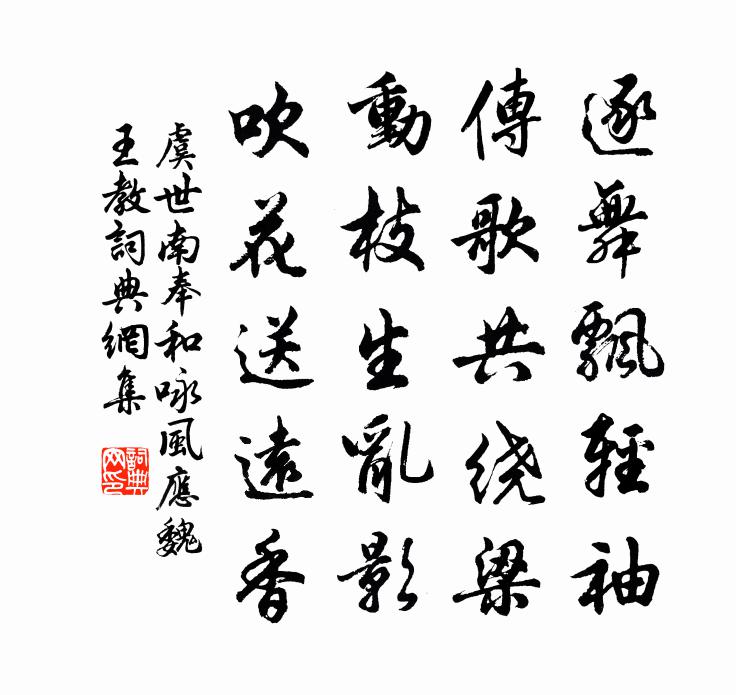 逐舞飄輕袖
傳歌共绕梁
動枝生亂影
吹花送遠香
虞世南奉和咏風應魏
王教詞典網集
詞典网印